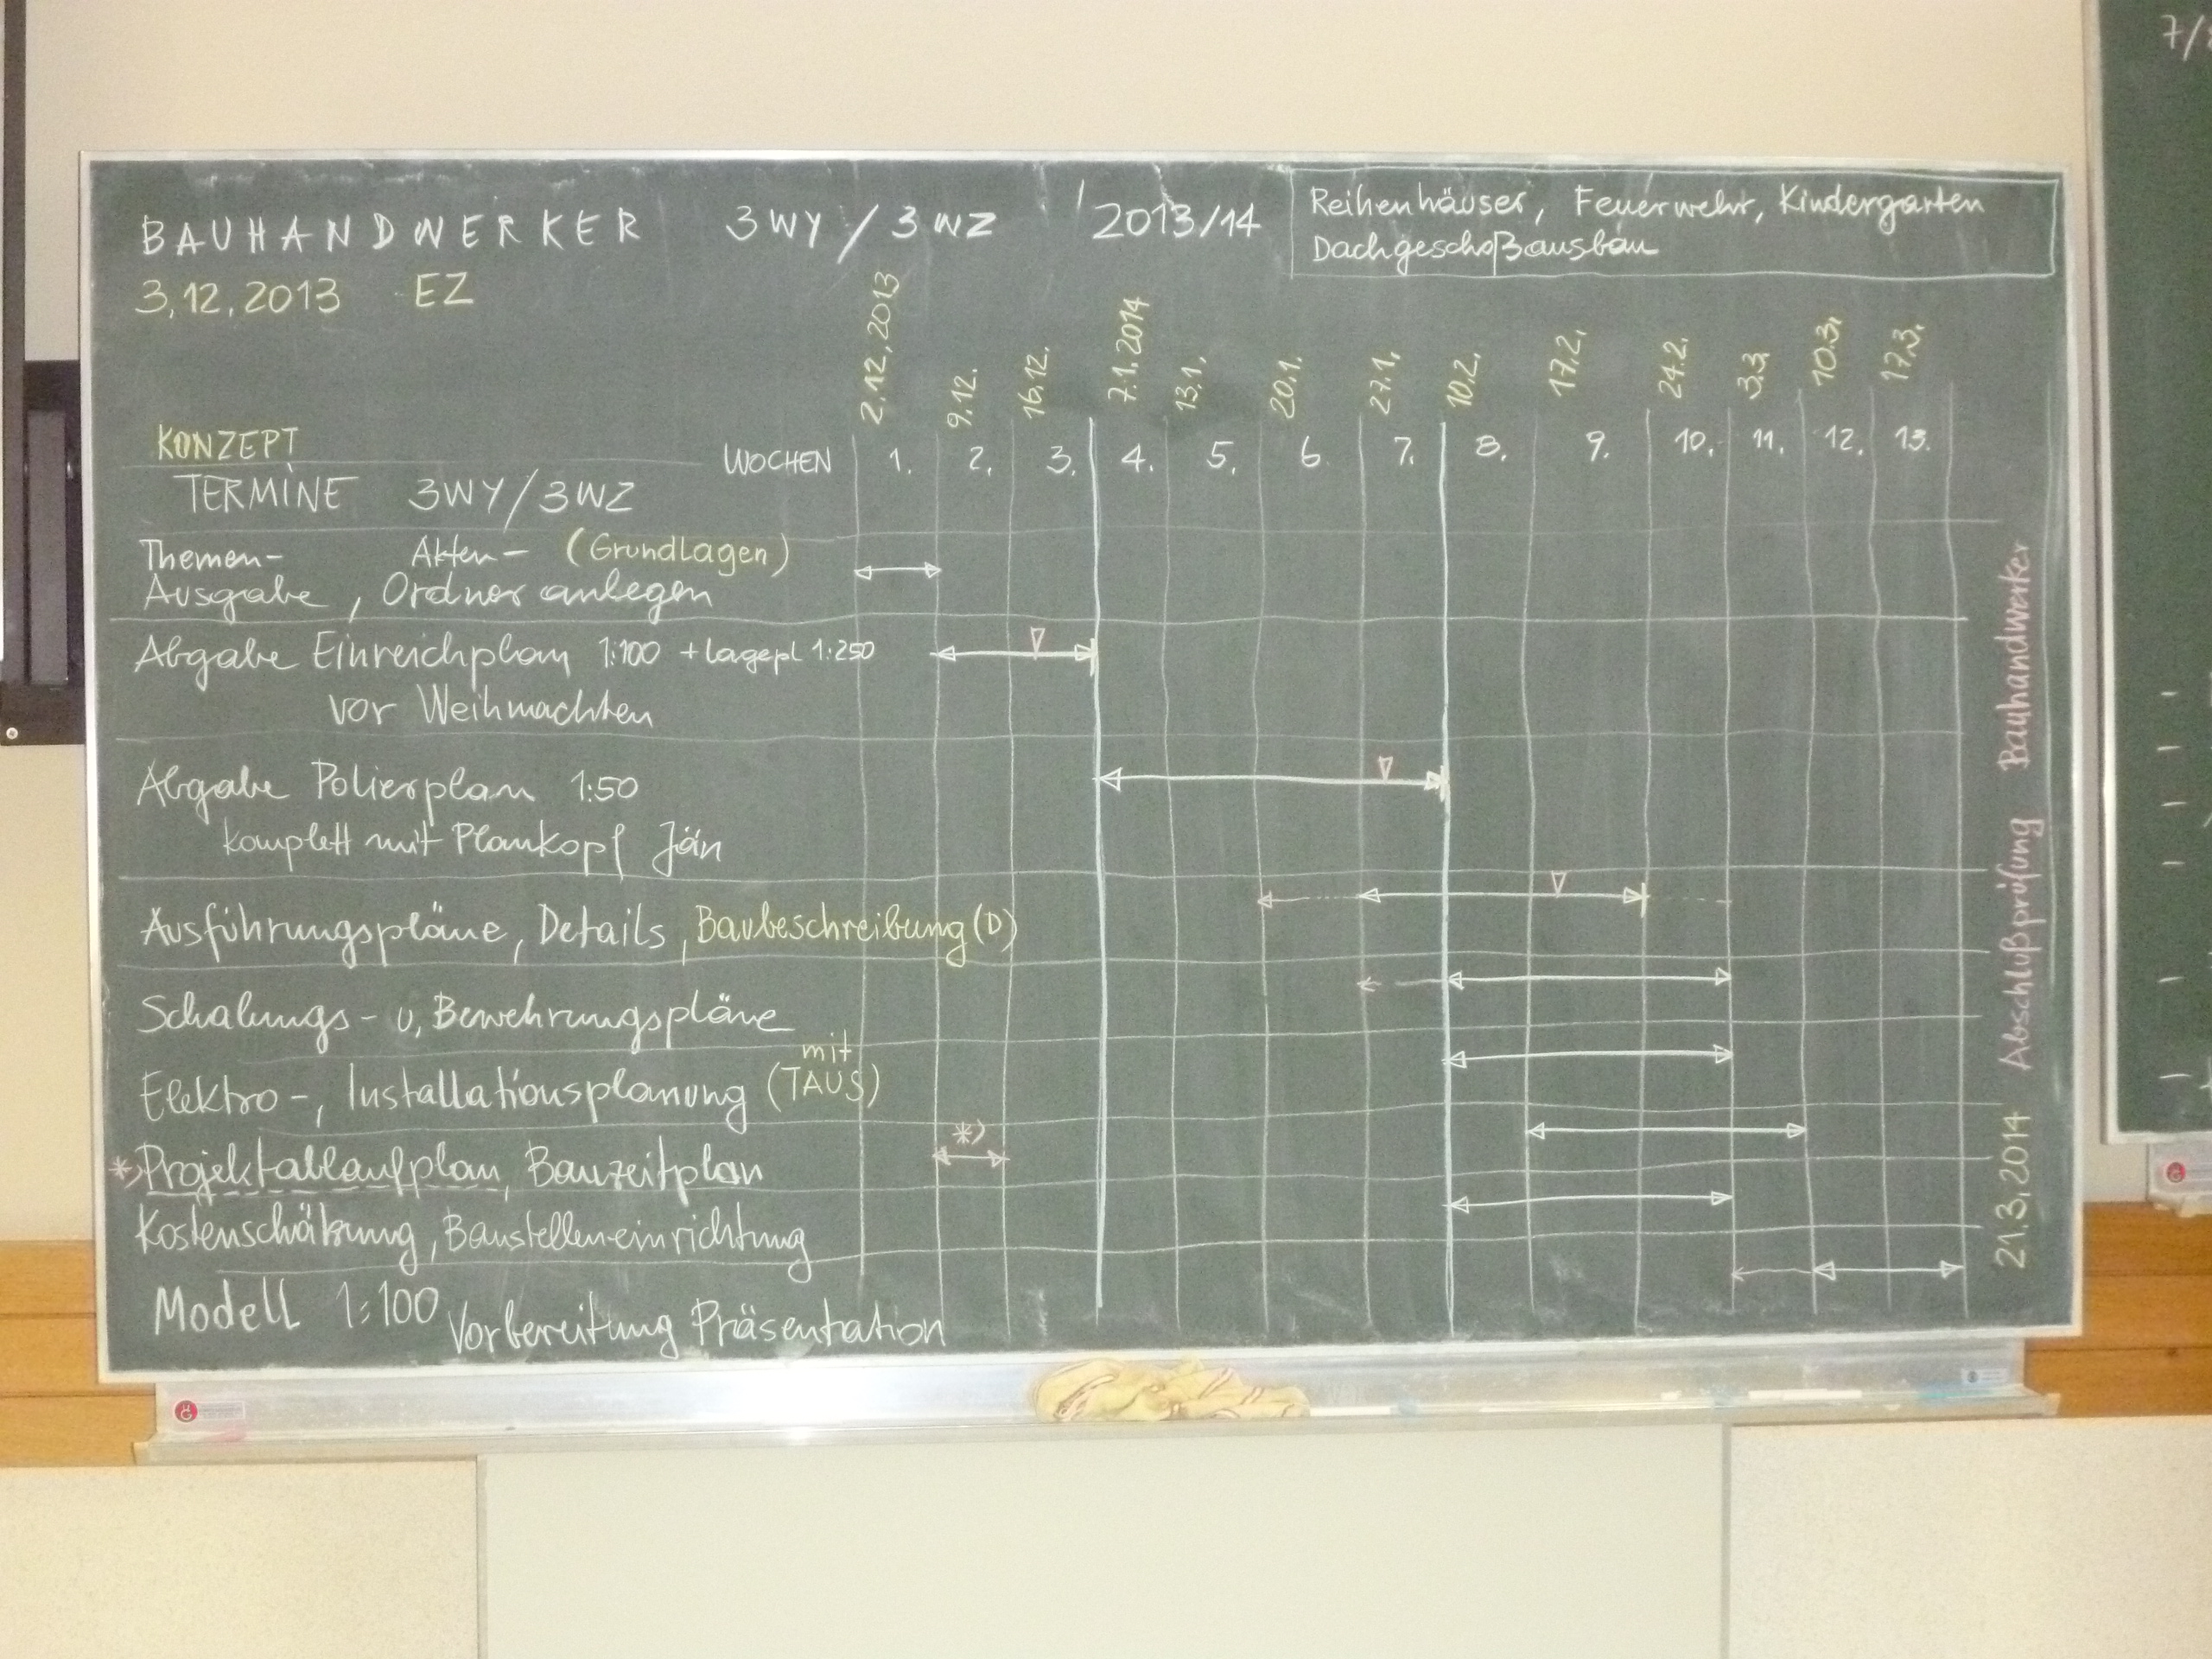 BAUHANDWERKER 3WY/3WZ 2013/14
Reihenhäuser, Feuerwehr, Kindergarten
Dachgeschoßausbau
3.12.2013 EZ
2.12.2013 9.12. 16.12. 7.1.2014 13.1. 20.1. 27.1. 10.2. 17.2. 24.2. 3.3. 10.3. 17.3.
KONZEPT
WOCHEN 1. 2. 3. 4. 5. 6. 7. 8. 9. 10. 11. 12. 13.
TERMINE 3WY/3WZ
Themen- Akten- (Grundlagen)
Ausgabe, Ordner anlegen
Abgabe Einreichplan 1:100 + Lagepl 1:250
vor Weihnachten
Abgabe Polierplan 1:50
komplett mit Plankopf Jän
Ausführungspläne, Details, Baubeschreibung (D)
Schalungs- u, Bewehrungspläne
mit
Elektro-, Installationsplanung (TAUS)
*)
*) Projektablaufplan, Bauzeitplan
Kostenschätzung, Baustelleneinrichtung
Modell 1:100 Vorbereitung Präsentation
21.3.2014 Abschlußprüfung Bauhandwerker